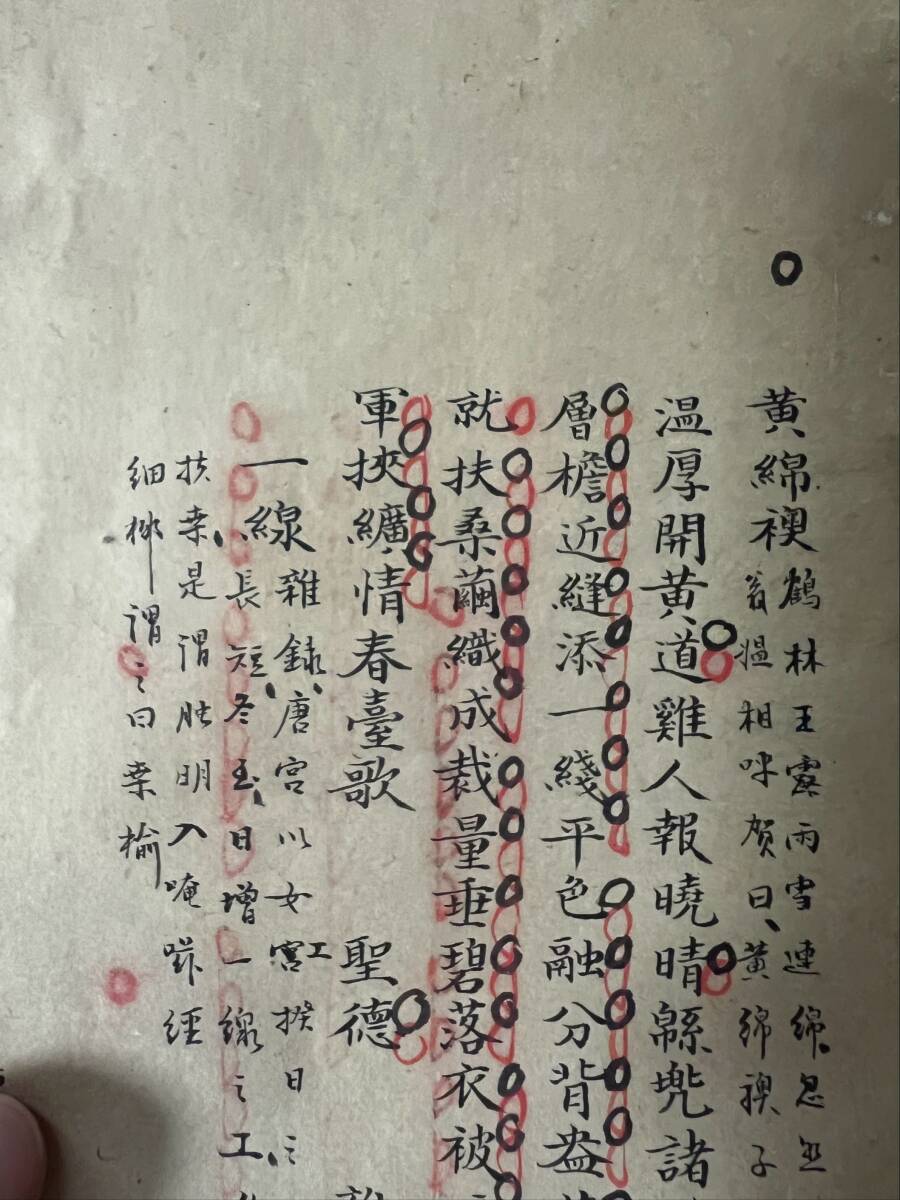 黃綿襖
鶴林玉露雨雪連綿忽
翁媼相呼賀曰黃綿襖子
溫厚開黃道雞人報曉晴緜兠諸
層檐近縫添一綫平色融分背盎
就扶桑繭織成裁量垂碧落衣被
軍挾纊情春臺歌 聖德
一線
雜錄唐宮以女工揆日之
長短冬至日增一線之工
扶桑是謂朏明入崦嵫經
細柳謂之曰桑榆